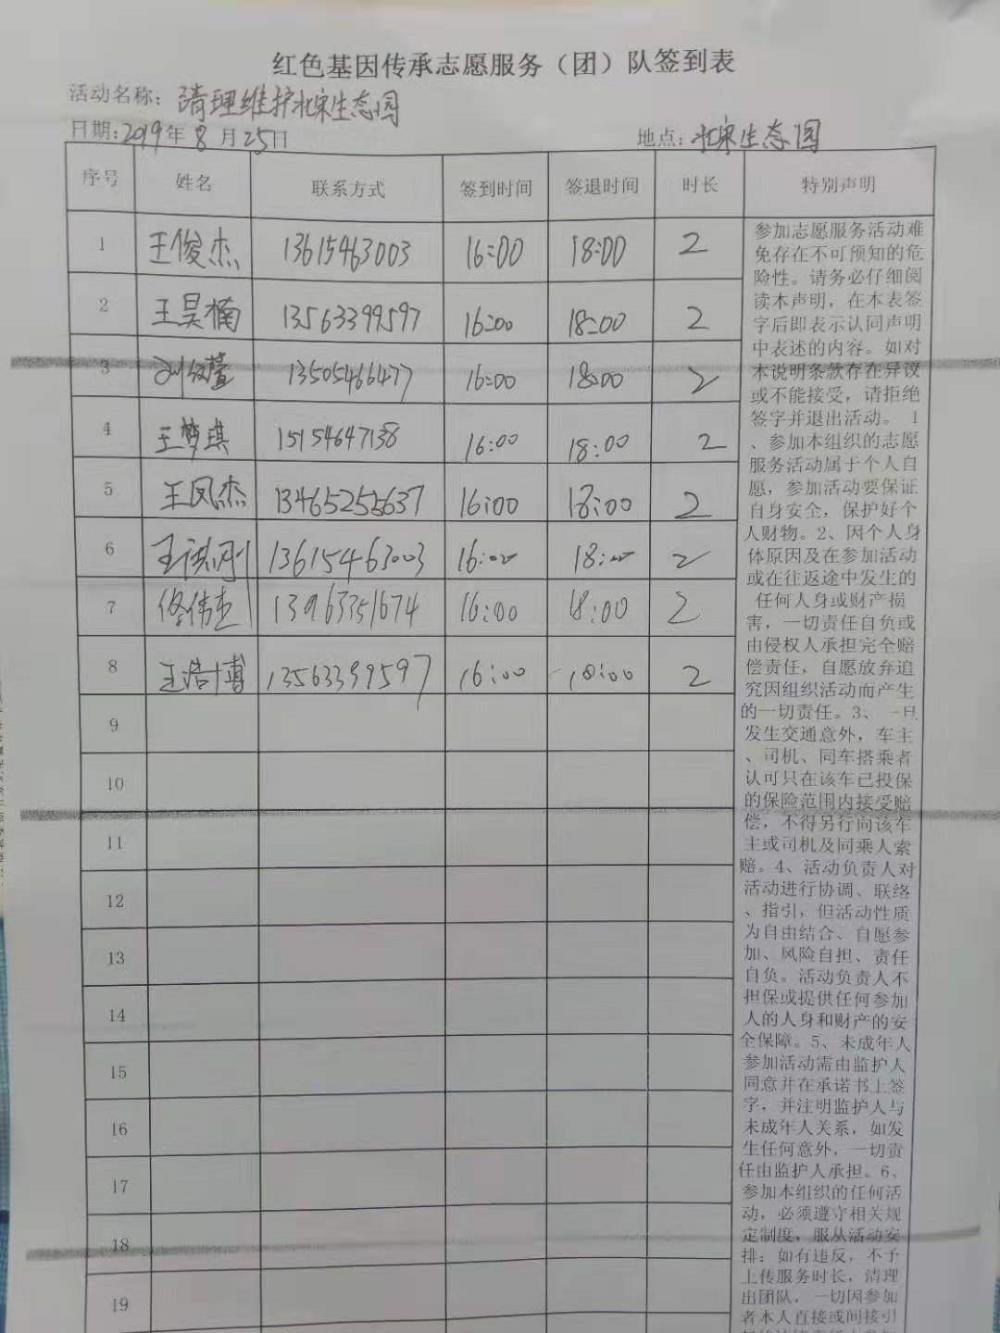 红色基因传承志愿服务（团）队签到表
活动名称：清理维护北宋生态园
日期：2019年8月25日 地点：北宋生态园
序号 姓名 联系方式 签到时间 签退时间 时长 特别声明
1 王俊杰 13615463003 16:00 18:00 2
2 王昊楠 13563399597 16:00 18:00 2
3 13505466477 16:00 18:00 2
4 王梦琪 15154647138 16:00 18:00 2
5 王凤杰 13465255637 16:00 18:00 2
6 13615463003 16:00 18:00 2
7 佟伟志 13963351674 16:00 18:00 2
8 王浩博 13563399597 16:00 18:00 2
9
10
11
12
13
14
15
16
17
18
19
参加志愿服务活动难
免存在不可预知的危
险性。请务必仔细阅
读本声明，在本表签
字后即表示认同声明
中表述的内容。如对
本说明条款存在异议
或不能接受，请拒绝
签字并退出活动。 1
、参加本组织的志愿
服务活动属于个人自
愿，参加活动要保证
自身安全，保护好个
人财物。2、因个人身
体原因及在参加活动
或在往返途中发生的
任何人身或财产损
害，一切责任自负或
由侵权人承担完全赔
偿责任，自愿放弃追
究因组织活动而产生
的一切责任。3、 一旦
发生交通意外，车主
、司机、同车搭乘者
认可只在该车已投保
的保险范围内接受赔
偿，不得另行向该车
主或司机及同乘人索
赔。4、活动负责人对
活动进行协调、联络
、指引，但活动性质
为自由结合、自愿参
加、风险自担、责任
自负。活动负责人不
担保或提供任何参加
人的人身和财产的安
全保障。5、未成年人
参加活动需由监护人
同意并在承诺书上签
字，并注明监护人与
未成年人关系，如发
生任何意外，一切责
任由监护人承担。6、
参加本组织的任何活
动，必须遵守相关规
定制度，服从活动安
排；如有违反，不予
上传服务时长，清理
出团队，一切因参加
者本人直接或间接引